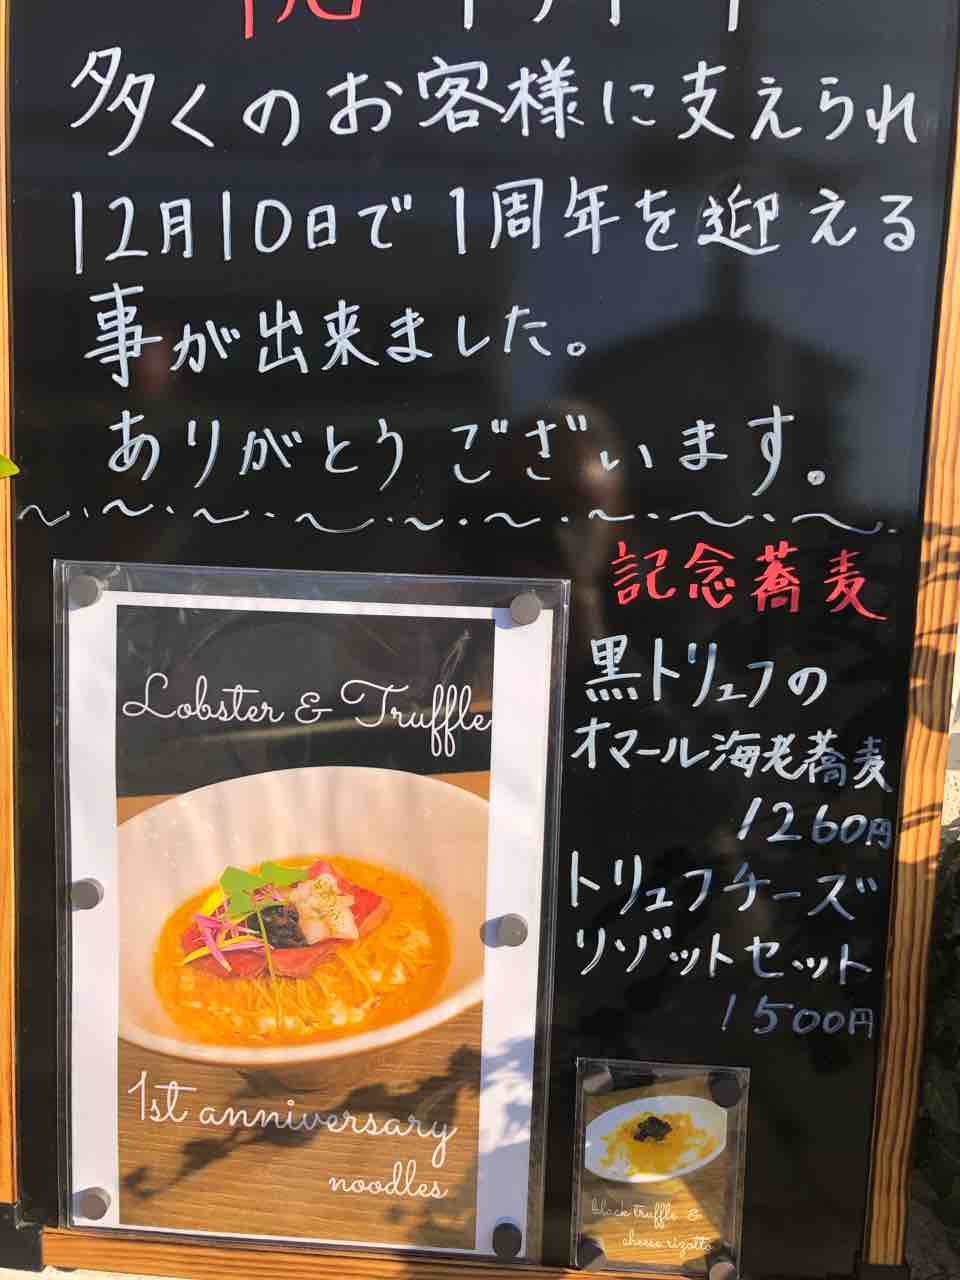 多くのお客様に支えられ
12月10日で1周年を迎える
事が出来ました。
ありがとうございます。
記念蕎麦
黒トリュフの
オマール海老蕎麦
1260円
トリュフチーズ
リゾットセット
1500円
Lobster & Truffle
1st anniversary
noodles
black truffle &
cheese rizotto